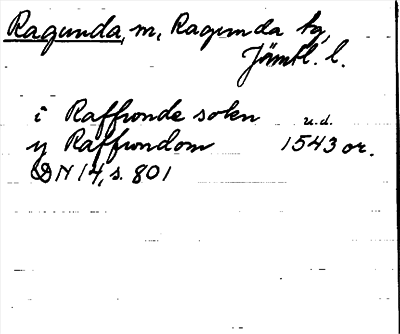 Ragunda, m, Ragunda tg,
Jämtl. l.
i Raffwnde sokn u.d.
y Raffwndom 1543 or.
DN 14, s. 801